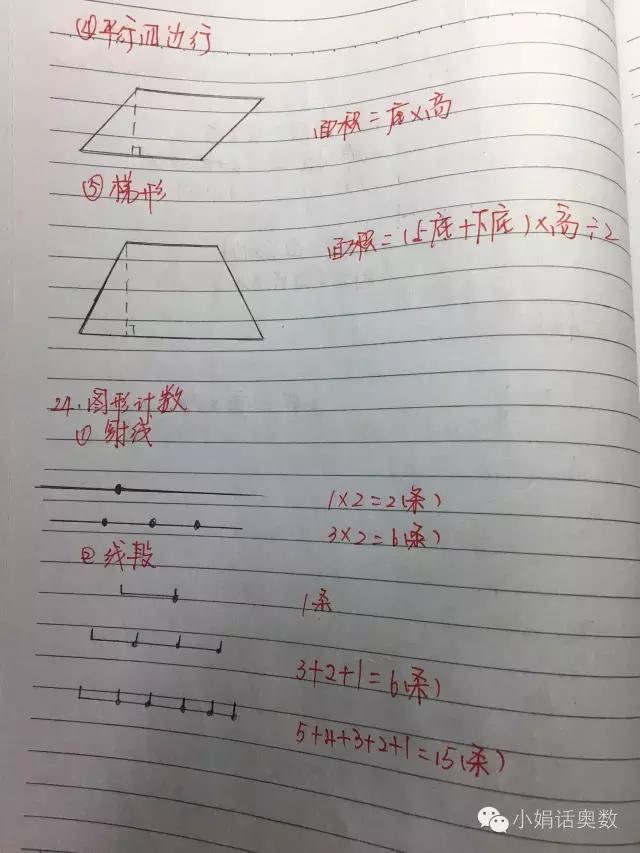 ④平行四边行
面积=底×高
⑤梯形
面积=(上底+下底)×高÷2
24.图形计数
①射线
1×2=2(条)
3×2=6(条)
②线段
1条
3+2+1=6(条)
5+4+3+2+1=15(条)
小娟话奥数